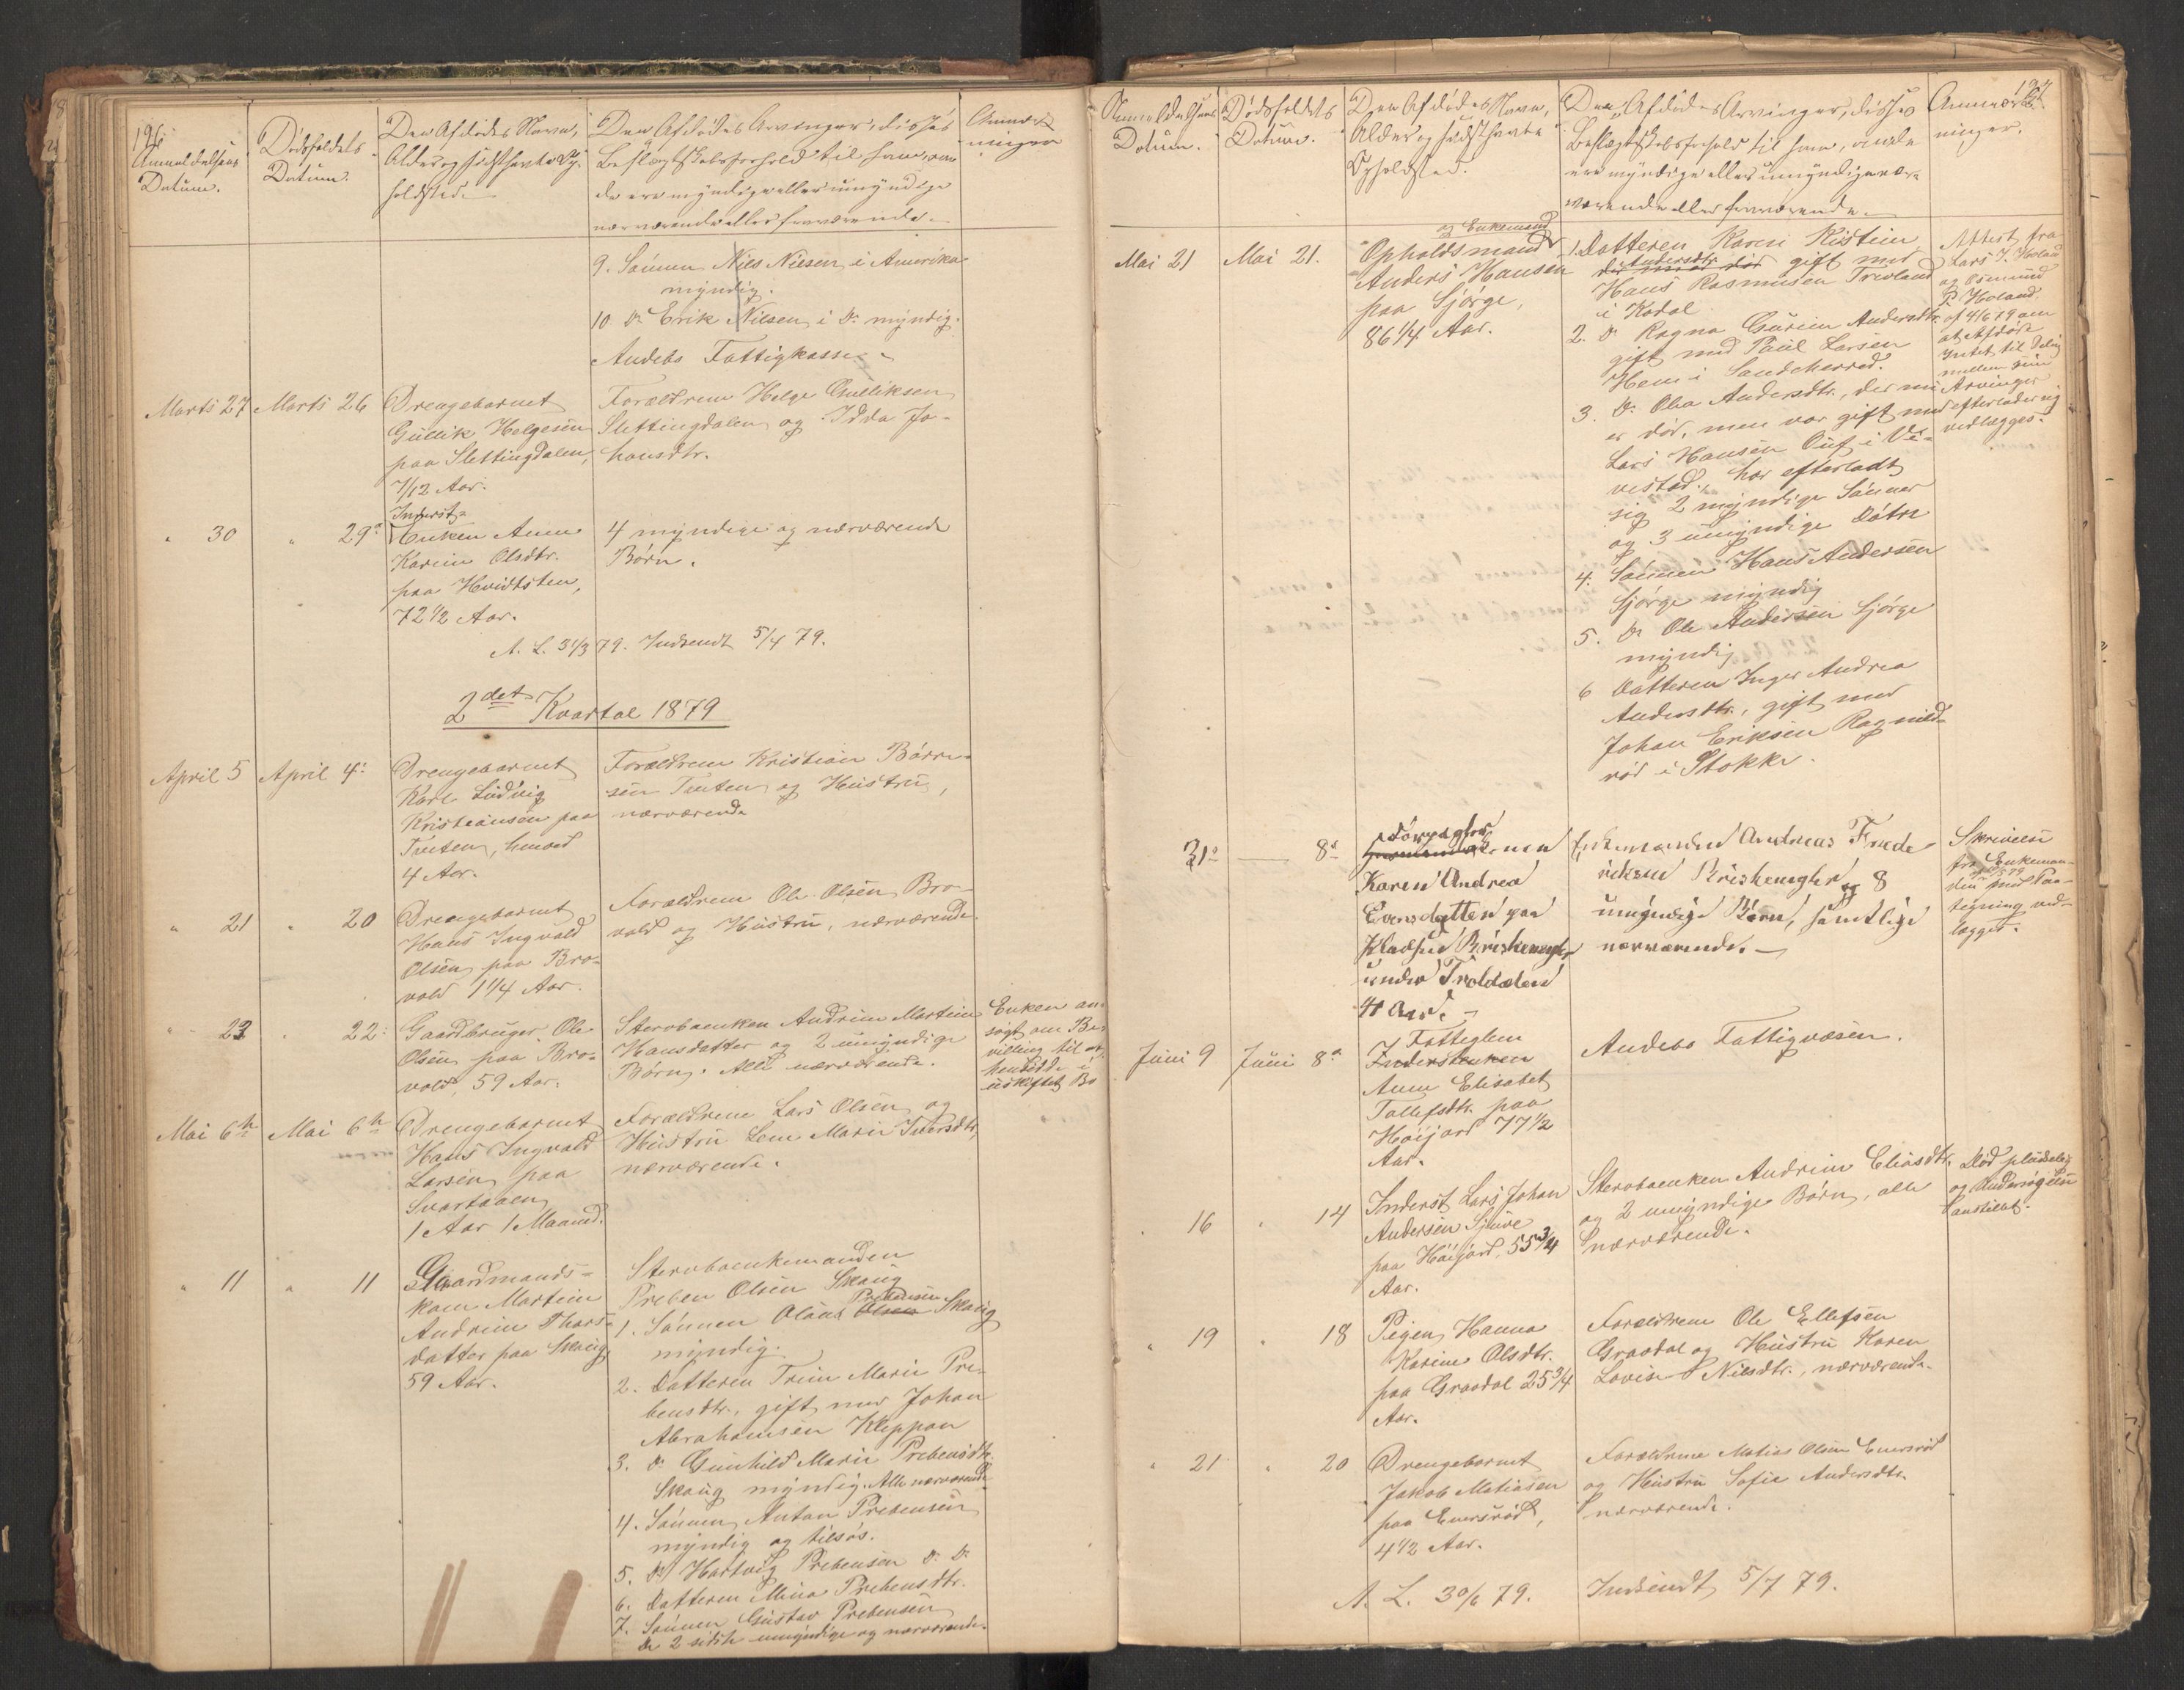 196
Anmeldelsens
Datum.
Dödsfaldets
Datum.
Den Afdödes Navn,
Alder og sidsthavte Op-
holdsted.
Den Afdödes Arvinger, disses
Beslægtskabsforhold til ham, om
de ere myndige eller umyndige
nærværende eller fraværende.
Anmærk-
ninger
9. Sönnen Niels Nilsen i Amerika
myndig.
10 Do Erik Nilsen i Do myndig.
Andebo Fattigkasse
Marts 27
Marts 26
Drengebarnet
Gullik Helgesen
paa Slettingdalen,
7/12 Aar.
Forældrene Helge Gulliksen
Slettingdalen og Idda Jo-
hansdtr.
" 30
" 29
Inderst-
Enken Anne
Karine Olsdtr.
paa Hvidtsten,
72 1/2 Aar.
4 myndige og nærværende
Börn.
A. L. 31/3 79. Indsendt 5/4 79.
2det Kvartal 1879
April 5
April 4
Drengebarnet
Karl Ludvig
Kristiansen paa
Tveten,
4 Aar.
Forældrene Kristian Börre-
sen Tveten og Hustru,
nærværende
" 21
" 20
Drengebarnet
Hans Ingvald
Olsen paa Bro-
vold 1 1/4 Aar.
Forældrene Ole Olsen Bro-
vold og Hustru, nærværende.
" 23
" 22
Gaardbruger Ole
Olsen paa Bro-
vold, 59 Aar.
Stervboenken Andrine Martine
Hansdatter og 2 umyndige
Börn. Alle nærværende.
Enken an-
sögt om Be-
villing til at
hensidde i
uskiftet Bo
Mai 6te
Mai 6te
Drengebarnet
Hans Ingvald
Larsen paa
Svartaaen
1 Aar 1 Maaned.
Forældrene Lars Olsen og
Hustru Lene Marie Iversdtr,
nærværende.
" 11
" 11
Gaardmands-
kone Martine
Andrine Thors-
datter paa Skaug,
59 Aar.
Stervboenkemanden
Preben Olsen Skaug
1. Sönnen Olaus Olsen Prebensen Skaug
myndig.
2. Datteren Trine Marie Pre-
bensdtr., gift med Johan
Abrahamsen Kleppan
3. Do Gunhild Marie Prebensdtr.
Skaug myndig. Alle nærværende
4. Sönnen Anton Prebensen
myndig og tilsös.
5. Do Hartvig Prebensen Do Do
6. Datteren Mina Prebensdtr.
7. Sönnen Gustav Prebensen
De 2 sidste umyndige og nærværende.
197
Anmeldelsens
Datum.
Dödsfaldets
Datum.
Den Afdödes Navn,
Alder og sidsthavte
Opholdsted.
Den Afdödes Arvinger, disses
Beslægtskabsforhold til ham, om de
ere myndige eller umyndige nær-
værende eller fraværende.
Anmærk-
ninger.
Mai 21
Mai 21.
og Enkemand
Opholdsmand
Anders Hansen
paa Sjörge,
86 1/4 Aar.
1. Datteren Karen Kirstine
Andersdtr. gift med
Hans Rasmusen Trevland
i Kodal
2. Do Ragna Gurine Andersdtr.
gift med Paul Larsen
Hem i Sandeherred.
3. Do Olea Andersdtr., der nu
er död, men var gift med
Lars Hansen i Vi-
vestad, har efterladt
sig 2 myndige Sönner
og 3 umyndige Dötre
4. Sönnen Hans Andersen
Sjörge myndig
5. Do Ole Andersen Sjörge
myndig
6 Datteren Inger Andrea
Andersdtr., gift med
Johan Eriksen Ragnild-
röd i Stokke.
Attest fra
Lars J. Hvland
og Osmund
P. Hvland
af 4/6 79 om
at Afdöde
Intet til Deling
mellem sine
Arvinger
efterlader sig
vedlægges.
31
8
Karen Andrea
Evensdatter paa
Pladsen Briskemyhr
under Trolldalen
41 Aar.
Enkemanden Andreas Frede-
riksen Briskemyhr og 8
umyndige Börn, samtlige
nærværende.
Skrivelse
fra Enkeman-
den med Paa-
tegning ved-
lagget.
Juni 9
Juni 8
Fattiglem
Inderstenken
Anne Elisabet
Tollefsdtr. paa
Höijord 77 1/2
Aar.
Andebo Fattigvæsen.
" 16
" 14
Inderst Lars Johan
Andersen Sjuve
paa Höijord, 55 3/4
Aar.
Stervboenken Andrine Eliasdtr.
og 2 umyndige Börn, alle
nærværende.
Död pludselig
og Undersögelse
anstillet.
" 19
" 18
Pigen Hanna
Karine Olsdtr.
paa Graadal 25 3/4
Aar.
Forældrene Ole Ellefsen
Graadal og Hustru Karen
Lovise Nilsdtr., nærværende.
" 21
" 20
Drengebarnet
Jakob Matiasen
paa Eversröd,
4 1/2 Aar.
Forældrene Matias Olsen Eversröd
og Hustru Sofie Andersdtr.
nærværende.
A. L. 30/6 79.
Indsendt 5/7 79.